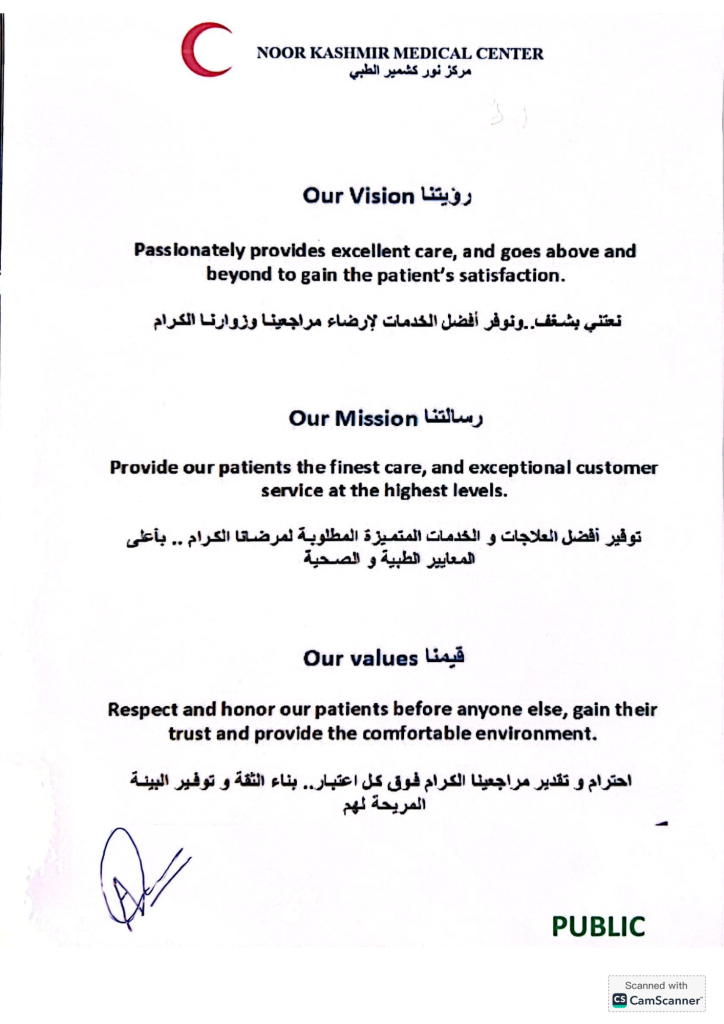 NOOR KASHMIR MEDICAL CENTER
مركز نور كشمير الطبي
Our Vision رؤيتنا
Passionately provides excellent care, and goes above and
beyond to gain the patient's satisfaction.
نعتني بشغف..ونوفر أفضل الخدمات لإرضاء مراجعينا وزوارنا الكرام
Our Mission رسالتنا
Provide our patients the finest care, and exceptional customer
service at the highest levels.
توفير أفضل العلاجات و الخدمات المتميزة المطلوبة لمرضانا الكرام .. بأعلى
المعايير الطبية و الصحية
Our values قيمنا
Respect and honor our patients before anyone else, gain their
trust and provide the comfortable environment.
احترام و تقدير مراجعينا الكرام فوق كل اعتبار.. بناء الثقة و توفير البيئة
المريحة لهم
PUBLIC
Scanned with
CS CamScanner